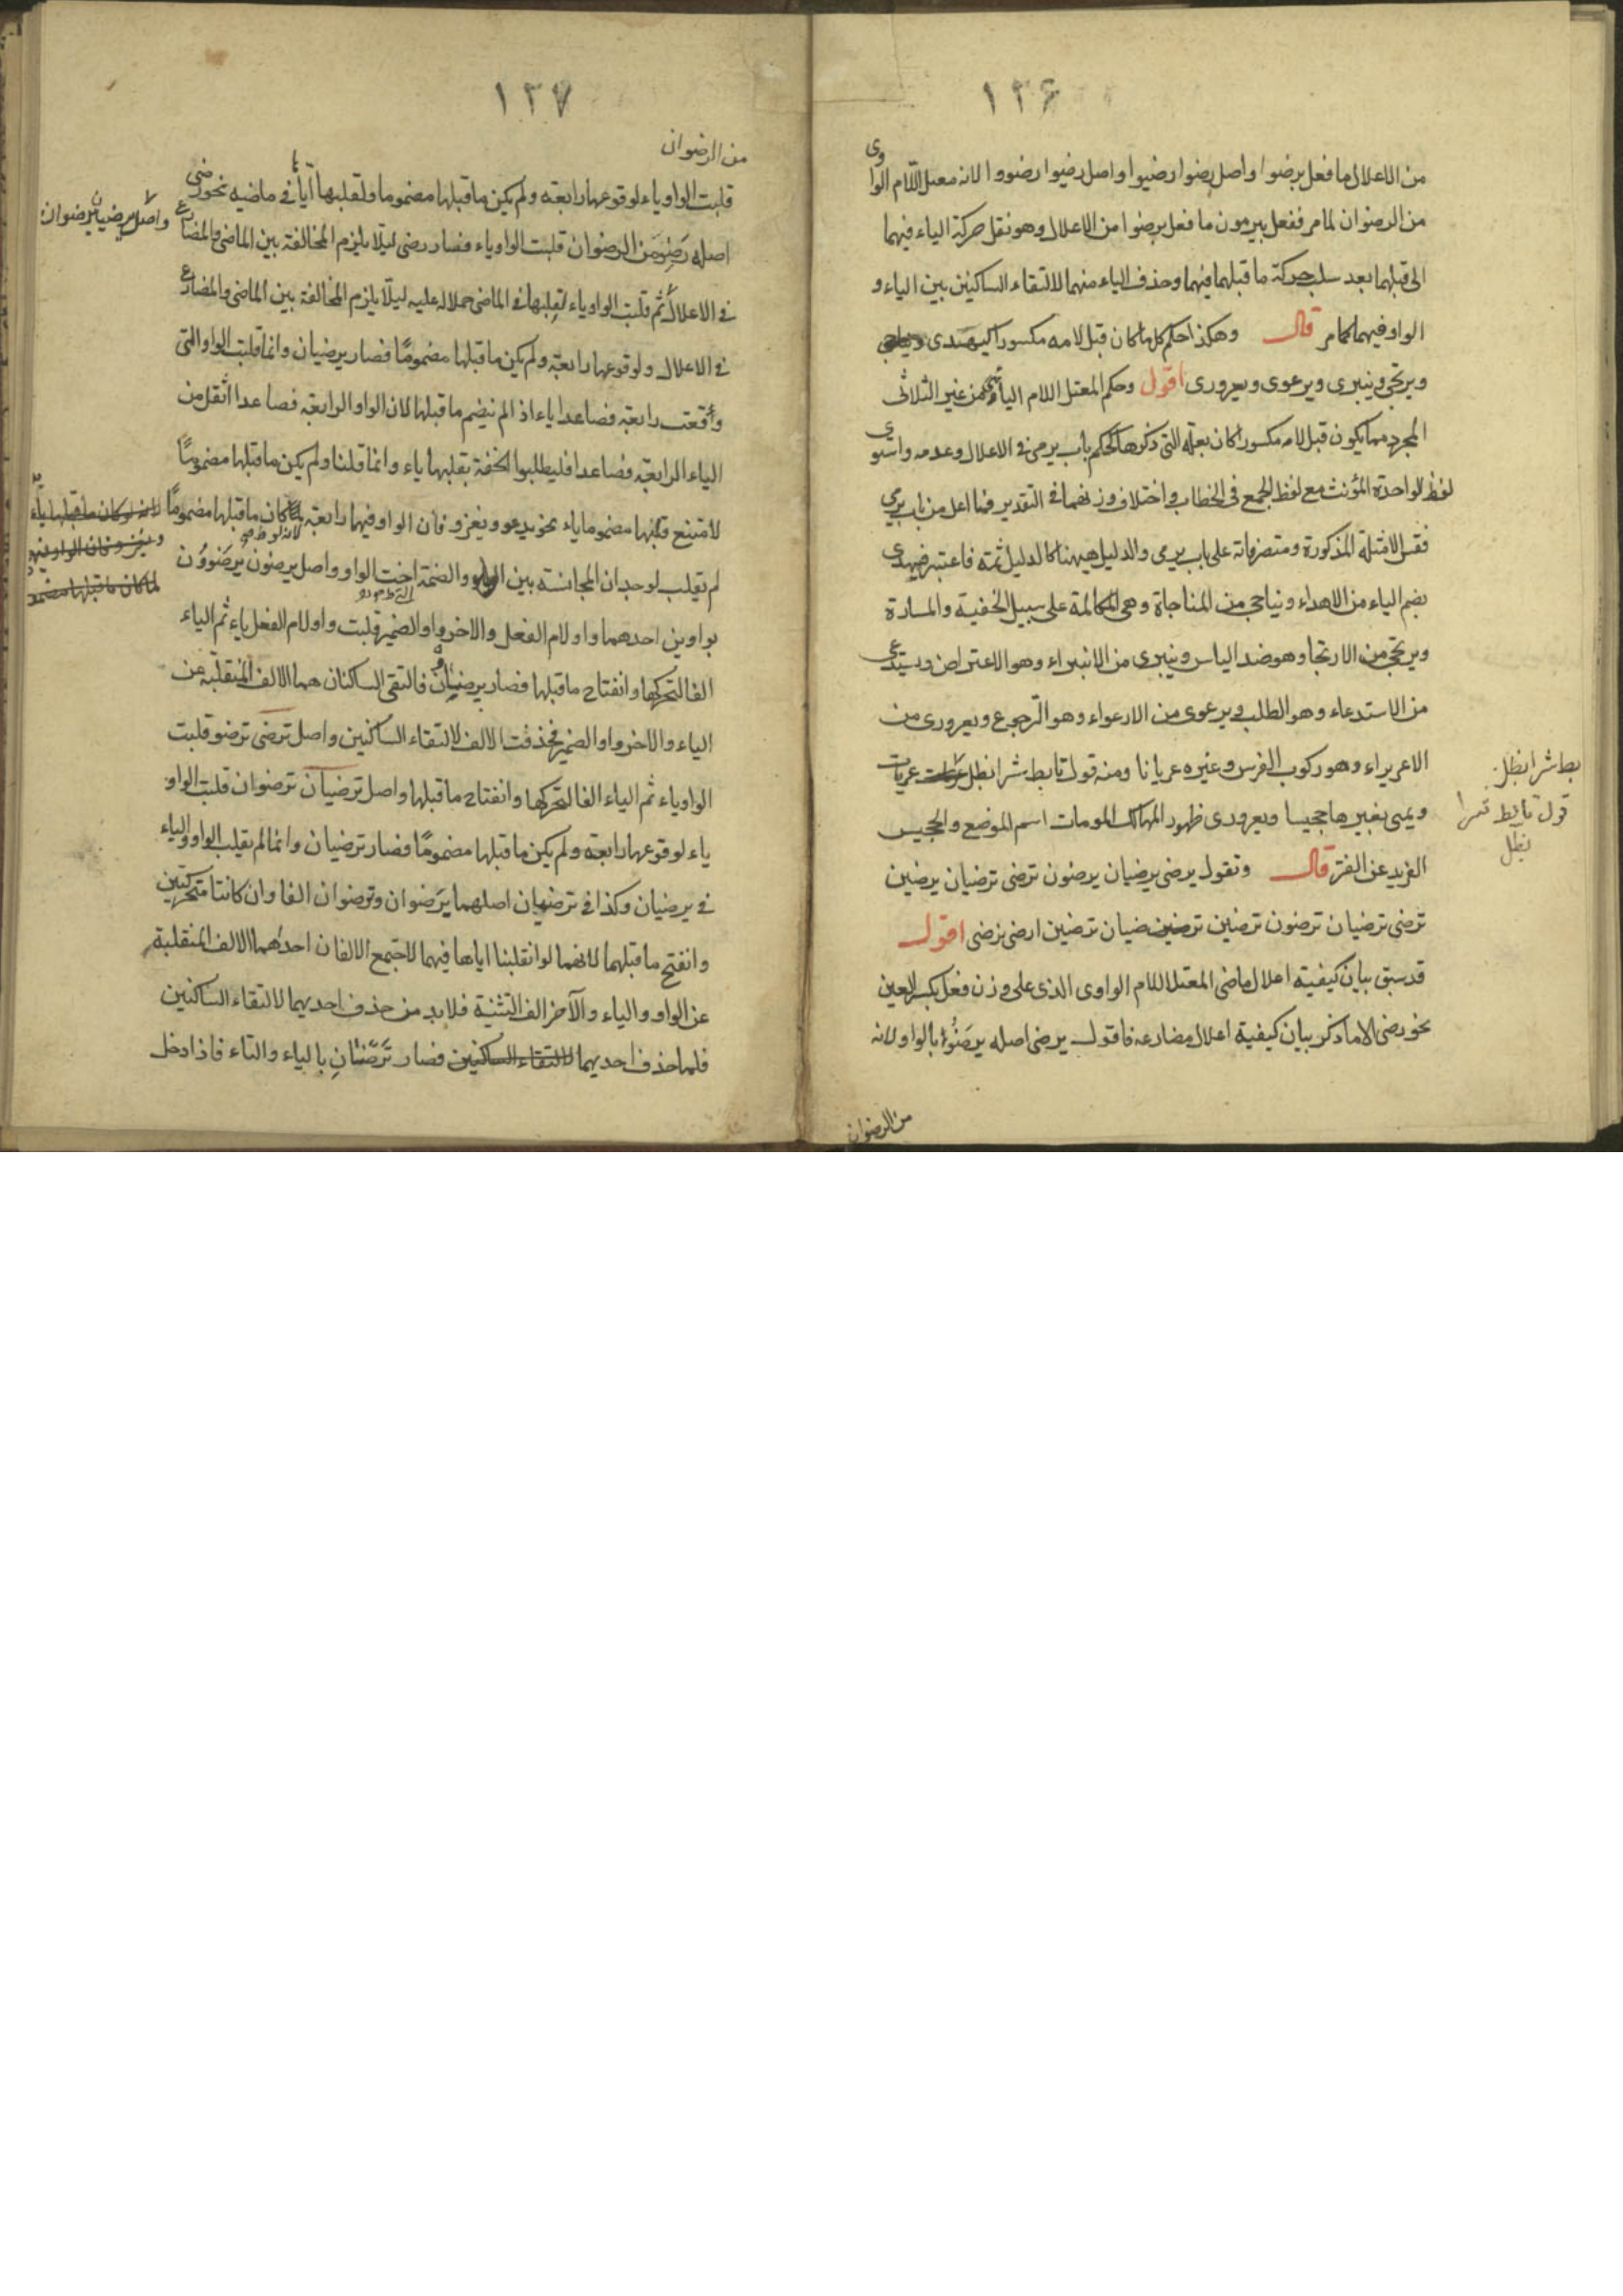 ١٣٦
من الاعلال ما فعل برضوا واصل رضوا رضيوا واصل رضيوا رضووا لانه معتل اللام الواوى
من الرضوان لمامر ففعل بيرمون ما فعل برضوا من الاعلال وهو نقل حركة الياء فيهما
الى قبلهما بعد سلب حركة ما قبلهما فيهما وحذف الياء منهما لالتقاء الساكنين بين الياء و
الواو فيهما كما مر قال وهكذا حكم كل ما كان قبل لامه مكسورا كيهدى ويناجى
ويرتجى وينبرى ويرعوى ويعرورى اقول وحكم المعتل اللام اليائى من غير الثلاثى
المجرد مما يكون قبل لامه مكسورا كان بعلة التى ذكرها كحكم باب يرمى فى الاعلال وعدمه واستوى
لفظ الواحدة المؤنث مع لفظ الجمع فى الخطاب واختلاف وزنهما فى التقدير فما اعل من باب يرمي
فقس الامثلة المذكورة ومتصرفاته على باب يرمى والدليل ههنا كالدليل ثمة فاعتبر فيهدى
بضم الياء من الاهداء ويناجى من المناجاة وهى المكالمة على سبيل الخفية والمسارة
ويرتجى من الارتجا وهو ضد الياس وينبرى من الانبراء وهو الاعتراض ويستدعى
من الاستدعاء وهو الطلب ويرعوى من الارعواء وهو الرجوع ويعرورى من
الاعريراء وهو ركوب الفرس وغيره عريانا ومنه قول تابط شرا نظل عريات
ويمسى بغيرها جحيسا ويعرورى ظهور المهالك المومات اسم الموضع والجحيس
الفريد عن الفتر قال وتقول يرضى يرضيان يرضون ترضى ترضيان يرضين
ترضى ترضيان ترضون ترضين ترضيان ترضين ارضى نرضى اقول
قد سبق بيان كيفية اعلال ماضى المعتل اللام الواوى الذى على وزن فعل بكسر العين
نحو رضى الا ما ذكر بيان كيفية اعلال مضارعه فاقول يرضى اصله يرضو بالواو لانه
من الرضوان
بط شرا نظل
قول تابط شرا
نظل
١٣٧
من الرضوان
قلبت الواو ياء لوقوعها رابعة ولم يكن ما قبلها مضموما ولقلبها ايا فى ماضيه نحو رضى
اصله رضو من الرضوان قلبت الواو ياء فصار رضى ليلا يلزم المخالفة بين الماضى والمضارع
واصل يرضيان يرضوان
فى الاعلال ثم قلبت الواو ياء لقلبها فى الماضى حملا له عليه ليلا يلزم المخالفة بين الماضى والمضارع
فى الاعلال ولوقوعها رابعة ولم يكن ما قبلها مضموما فصار يرضيان وانما قلبت الواو التى
وقعت رابعة فصاعدا ياء اذ الم ينضم ما قبلها لان الواو الرابعة فصاعدا اثقل من
الياء الرابعة فصاعدا فليطلبوا الخفة بقلبها ياء وانما قلنا ولم يكن ما قبلها مضموما
لامتنع قلبها مضموما ياء نحو يدعو ويغزو فان الواو فيهما رابعة لما كان ما قبلها مضموما
لانه لو كان ما قبلها ياء
ويغزو فان الواو فيهما
لما كان ما قبلها مضمو
لم يقلب لوجدان المجانسة بين الواو والضمة اخت الواو واصل يرضون يرضوون
بواوين احدهما واو لام الفعل والاخر واو الضمير قلبت واو لام الفعل ياء ثم الياء
الفا لتحركها وانفتاح ما قبلها فصار يرضيان فالتقى الساكنان هما الالف المنقلبة عن
الياء والاخر واو الضمير فحذفت الالف لالتقاء الساكنين واصل ترضى ترضو قلبت
الواو ياء ثم الياء الفا لتحركها وانفتاح ما قبلها واصل ترضيان ترضوان قلبت الواو
ياء لوقوعها رابعة ولم يكن ما قبلها مضموما فصار ترضيان وانما لم تقلب الواو والياء
فى يرضيان وكذا فى ترضيان اصلهما يرضوان وترضوان الفا وان كانتا متحركتين
وانفتح ما قبلهما لانهما لو انقلبنا اياها فيهما لاجتمع الالفان احدهما الالف المنقلبة
عن الواو والياء والآخر الف التثنية فلابد من حذف احديهما لالتقاء الساكنين
فلما حذف احديهما لالتقاء الساكنين فصار ترضان بالياء والتاء فاذا دخل